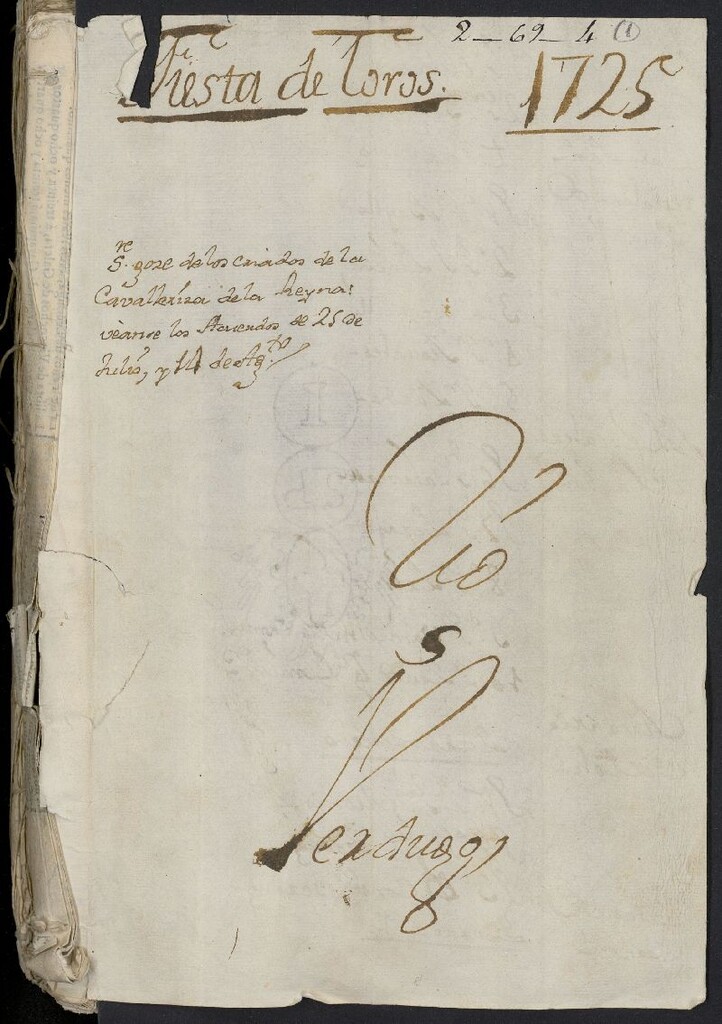 2-69-4 (1)
Fiesta de Toros. 1725
Sre. goze de los criados de la
Cavalleriza de la Reyna:
veanse los Acuerdos de 25 de
Julio, y 14 de Agto
S
Verdugo